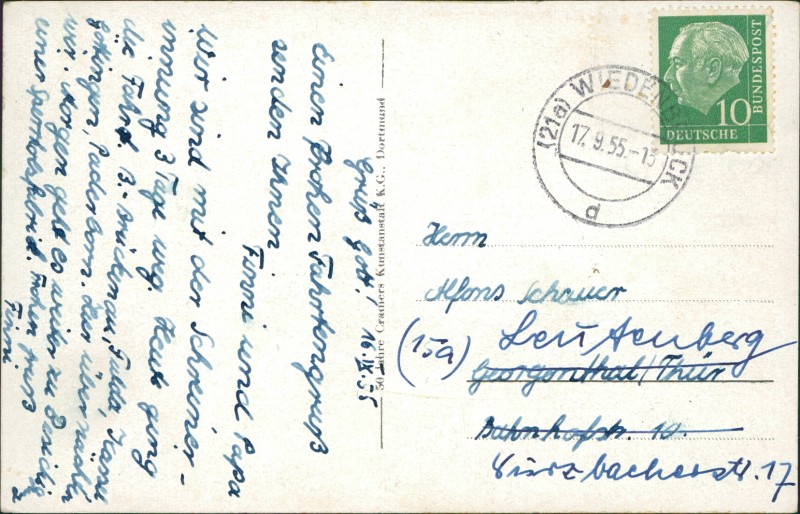 Grüß Gott! 16.IX.55
Einen frohen Fahrtengruß
senden Ihnen
Finni und Papa
Wir sind mit der Schreiner-
innung 3 Tage weg. Heute ging
die Fahrt. B.-Brückenau, Fulda, Kassel
Göttingen, Paderborn. Hier übernachten
wir. Morgen geht es weiter zu
einer Frohen Gruß
Finni
50 Jahre Cramers Kunstanstalt K.G., Dortmund
DEUTSCHE
BUNDESPOST
10
(21a) WIEDENBRÜCK
17.9.55.-13
d
Herrn
Alfons Schauer
(15a) Leutenberg
Georgenthal/Thür
Bahnhofstr. 10.
Würzbacherstr. 17